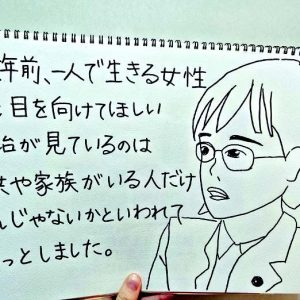 年前、一人で生きる女性
目を向けてほしい
治が見ているのは
や家族がいる人だけ
んじゃないかといわれて
っとしました。